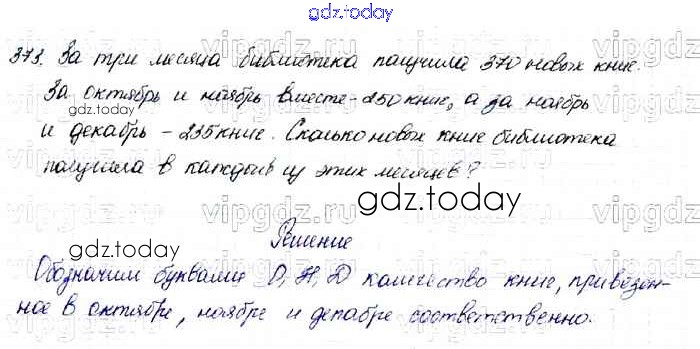 gdz.today
373. За три месяца библиотека получила 370 новых книг.
За октябрь и ноябрь вместе - 250 книг, а за ноябрь
и декабрь - 235 книг. Сколько новых книг библиотека
получила в каждый из этих месяцев?
gdz.today
gdz.today
Решение
Обозначим буквами О, Н, D количество книг, привезен-
ное в октябре, ноябре и декабре соответственно.